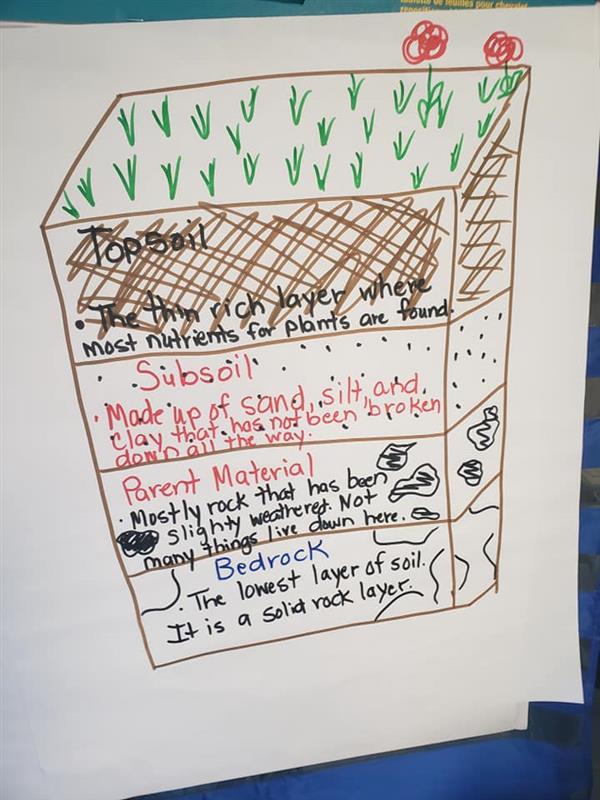 tablette de feuilles pour chevalet
Topsoil
• The thin rich layer where
most nutrients for plants are found.
Subsoil
• Made up of sand, silt, and
clay that has not been broken
down all the way.
Parent Material
• Mostly rock that has been
slighty weathered. Not
many things live down here.
Bedrock
• The lowest layer of soil.
It is a solid rock layer.